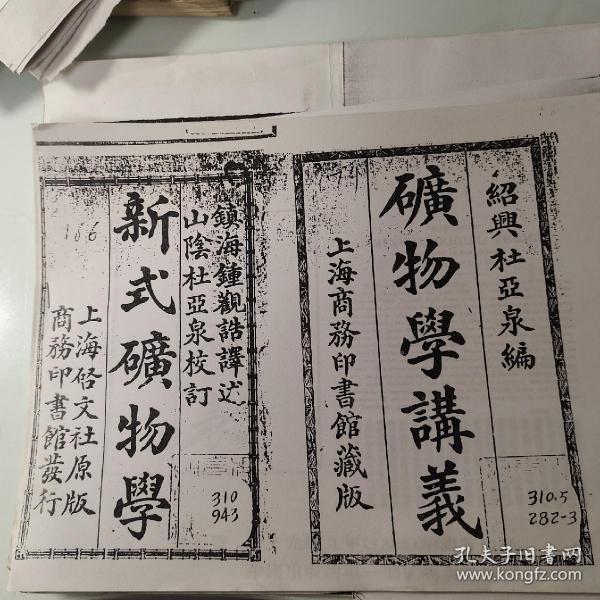 紹興杜亞泉編
礦物學講義
上海商務印書館藏版
310.5
282-3
鎮海鍾觀誥譯述
山陰杜亞泉校訂
新式礦物學
上海啓文社原版
商務印書館發行
166
310
943
孔夫子旧书网
www.kongfz.com